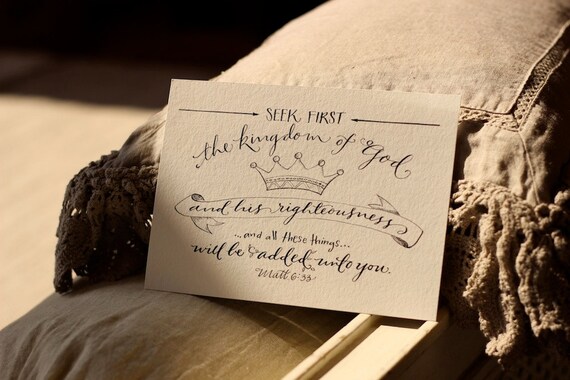 SEEK FIRST
the kingdom of God
and his righteousness
...and all these things...
will be added unto you.
Matt 6:33